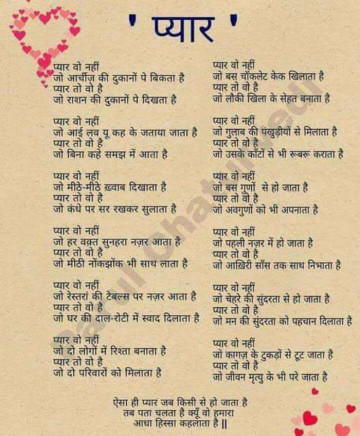 ' प्यार '
प्यार वो नहीं
जो आर्चीज़ की दुकानों पे बिकता है
प्यार तो वो है
जो राशन की दुकानों पे दिखता है
प्यार वो नहीं
जो आई लव यू कह के जताया जाता है
प्यार तो वो है
जो बिना कहे समझ में आता है
प्यार वो नहीं
जो मीठे-मीठे ख़्वाब दिखाता है
प्यार तो वो है
जो कंधे पर सर रखकर सुलाता है
प्यार वो नहीं
जो हर वक़्त सुनहरा नज़र आता है
प्यार तो वो है
जो मीठी नोंकझोंक भी साथ लाता है
प्यार वो नहीं
जो रेस्तरां की टेबल्स पर नज़र आता है
प्यार तो वो है
जो घर की दाल-रोटी में स्वाद दिलाता है
प्यार वो नहीं
जो दो लोगों में रिश्ता बनाता है
प्यार तो वो है
जो दो परिवारों को मिलाता है
प्यार वो नहीं
जो बस चॉकलेट केक खिलाता है
प्यार तो वो है
जो लौकी खिला के सेहत बनाता है
प्यार वो नहीं
जो गुलाब की पंखुड़ीयों से मिलाता है
प्यार तो वो है
जो उसके काँटों से भी रूबरू कराता है
प्यार वो नहीं
जो बस गुणों से हो जाता है
प्यार तो वो है
जो अवगुणों को भी अपनाता है
प्यार वो नहीं
जो पहली नज़र में हो जाता है
प्यार तो वो है
जो आख़िरी साँस तक साथ निभाता है
प्यार वो नहीं
जो चेहरे की सुंदरता से हो जाता है
प्यार तो वो है
जो मन की सुंदरता को पहचान दिलाता है
प्यार वो नहीं
जो कागज़ के टुकड़ों से टूट जाता है
प्यार तो वो है
जो जीवन मृत्यु के भी परे जाता है
ऐसा ही प्यार जब किसी से हो जाता है
तब पता चलता है क्यूँ वो हमारा
आधा हिस्सा कहलाता है ||